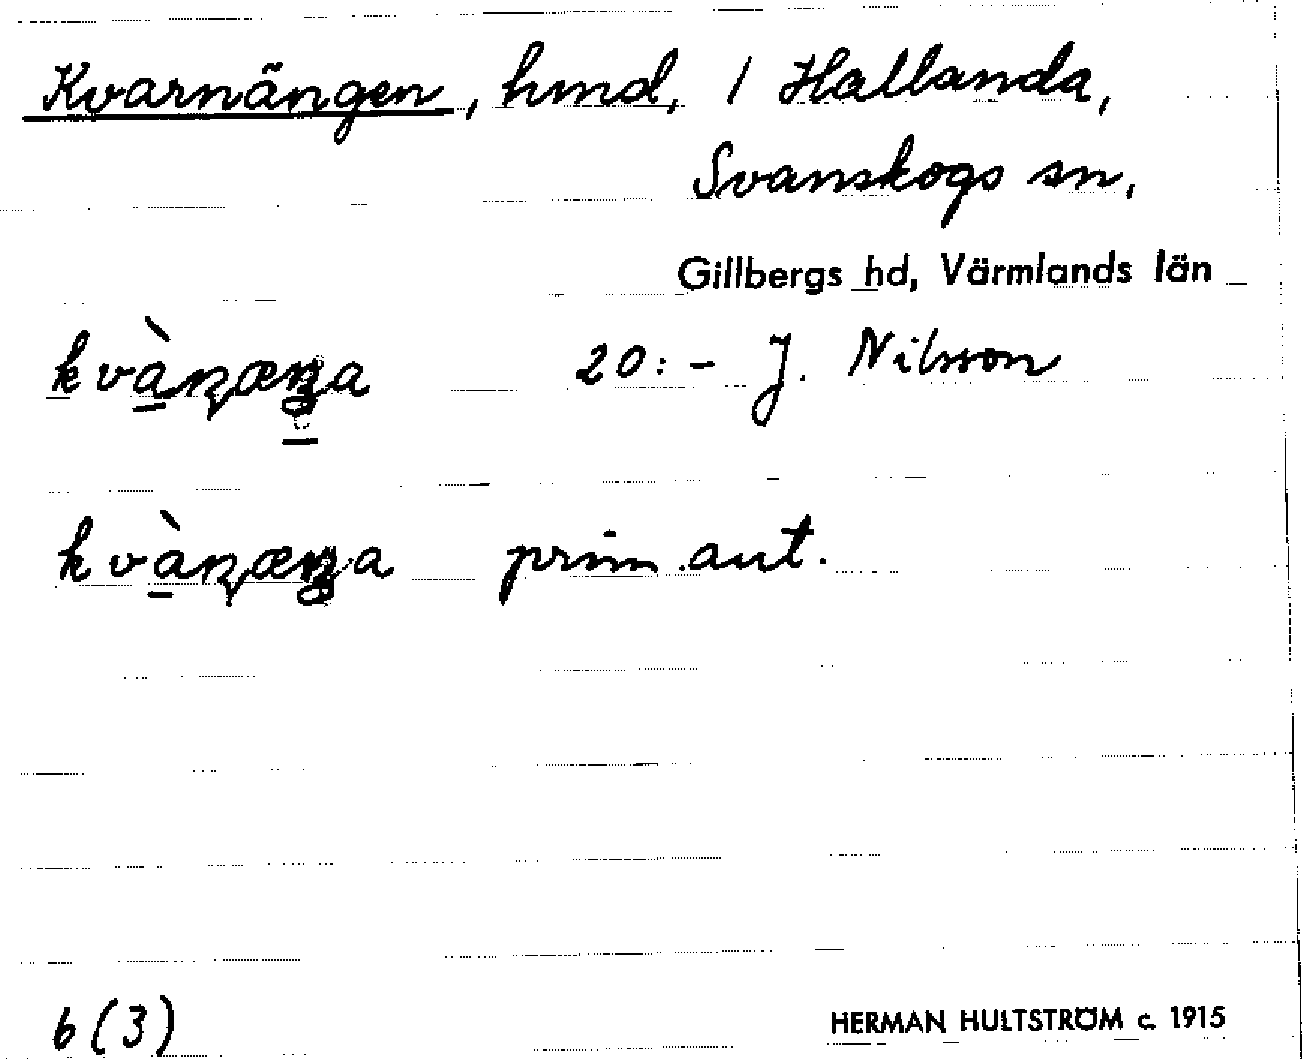 Kvarnängen, hmd, 1 Hallanda,
Svanskogs sn,
Gillbergs hd, Värmlands län
20:- J. Nilsson
prim. aut.
6 (3)
HERMAN HULTSTRÖM c. 1915